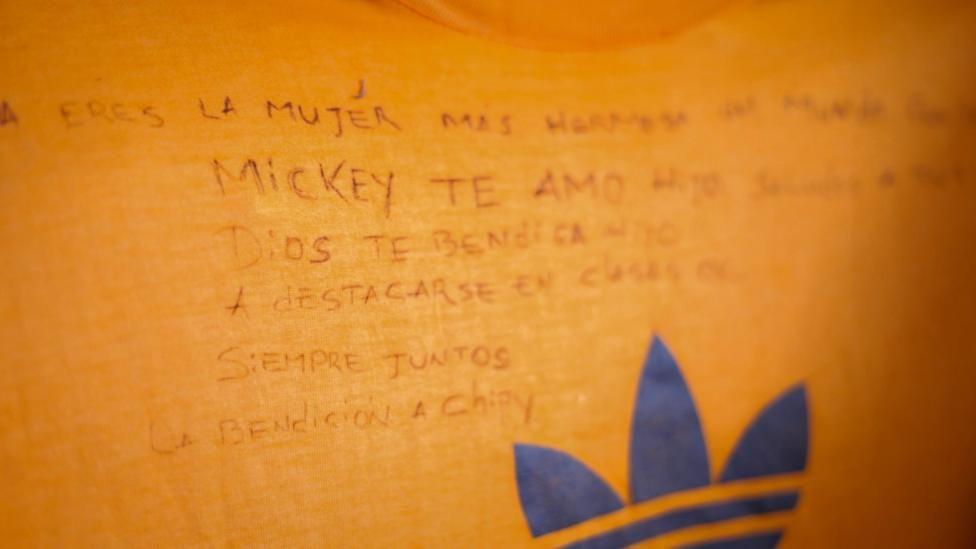 A ERES LA MUJER MÁS HERMOSA DEL MUNDO
MICKEY TE AMO HIJO
DiOS TE BENDiGA HIJO
A dESTACARSE EN CLASES
SiEMPRE JUNTOS
LA BENDiCiÓN A Chipy